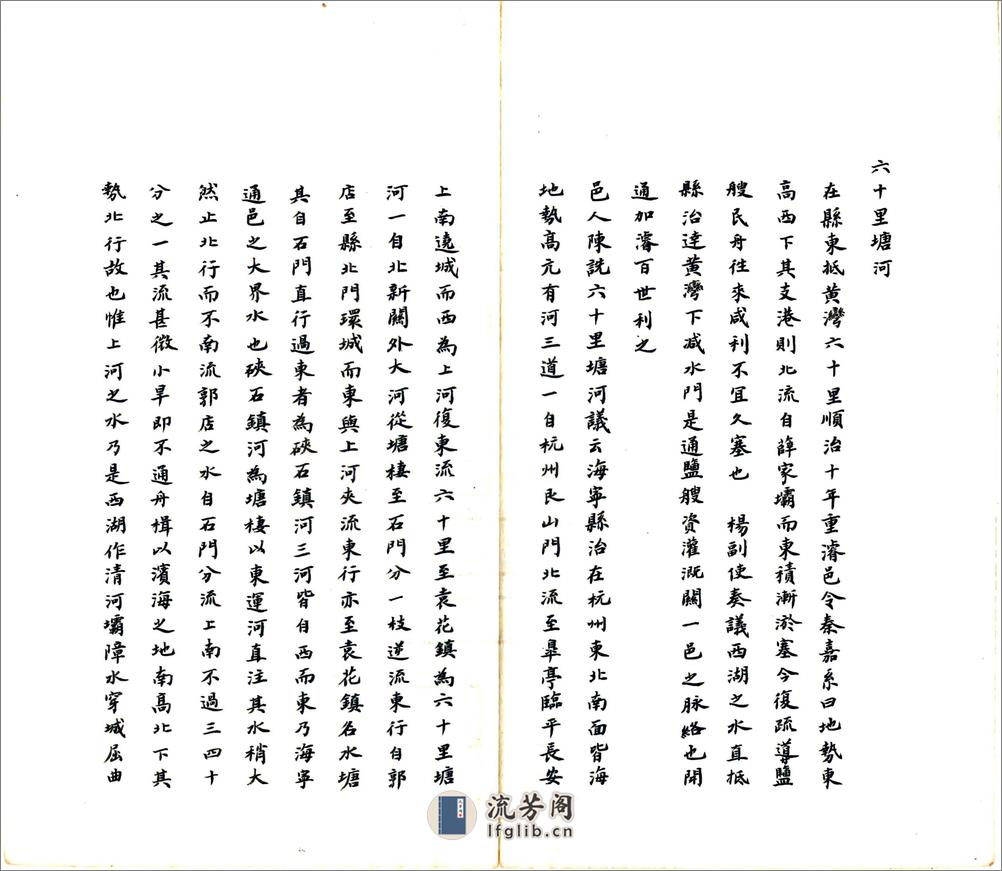 六十里塘河
在縣東抵黄灣六十里順治十年重濬邑令秦嘉系曰地勢東
高西下其支港則北流自薛家壩而東積漸淤塞今復疏導鹽
艘民舟往來咸利不宜久塞也　楊副使奏議西湖之水直抵
縣治達黄灣下减水門是通鹽艘資灌溉關一邑之脉絡也開
通加濬百世利之
邑人陳詵六十里塘河議云海寧縣治在杭州東北南面皆海
地勢高亢有河三道一自杭州艮山門北流至臯亭臨平長安
上南遶城而西為上河復東流六十里至袁花鎮為六十里塘
河一自北新關外大河從塘棲至石門分一枝逆流東行自郭
店至縣北門環城而東與上河夾流東行亦至袁花鎮名水塘
其自石門直行過東者為硤石鎮河三河皆自西而東乃海寧
通邑之大界水也硤石鎮河為塘棲以東運河直注其水稍大
然止北行而不南流郭店之水自石門分流上南不過三四十
分之一其流甚微小旱即不通舟楫以濱海之地南高北下其
勢北行故也惟上河之水乃是西湖作清河壩障水穿城屈曲
流芳阁
lfglib.cn